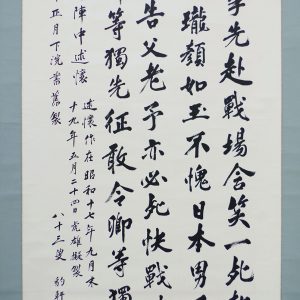 先赴戰場含笑一死
瓏顏如玉不愧日本男
告父老予亦必死快戰
等獨先征敢令卿等獨
陣中述懷
述懷作在昭和十七年九月末
十九年五月二十四日虎雄擬製
正月下浣舊製
八十三叟 豹軒